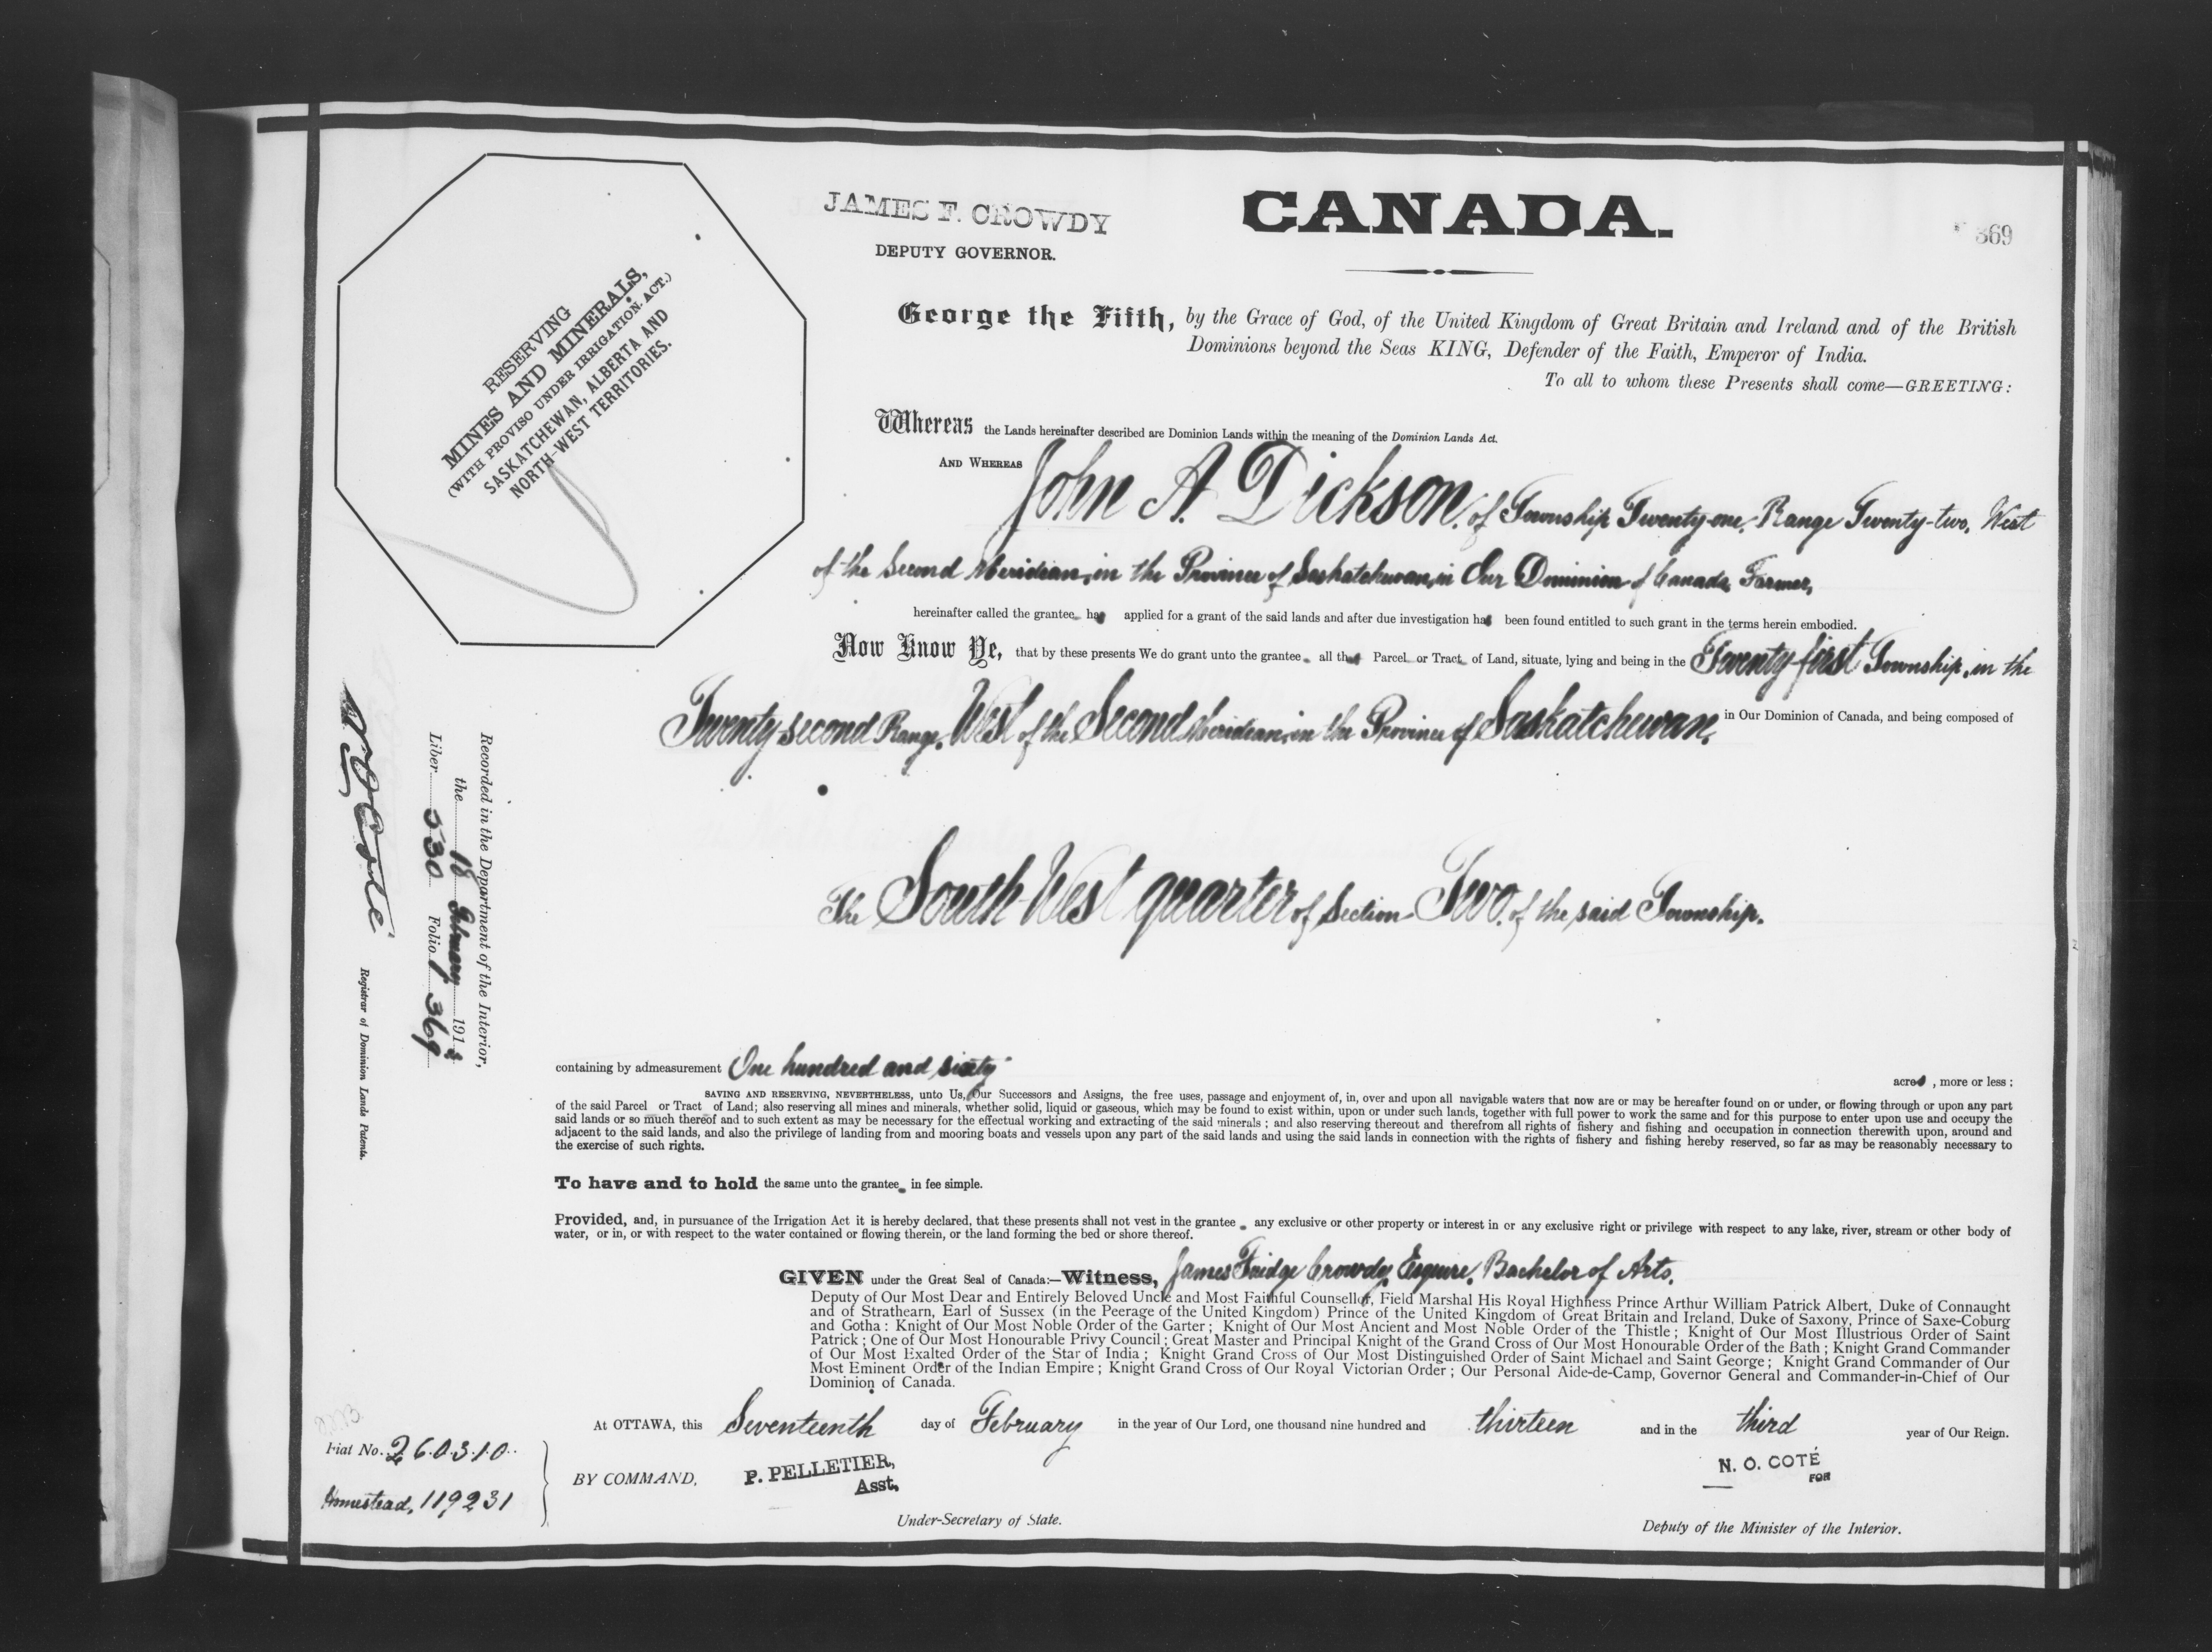 JAMES F. CROWDY
DEPUTY GOVERNOR.
CANADA.
369
RESERVING
MINES AND MINERALS,
(WITH PROVISO UNDER IRRIGATION ACT.)
SASKATCHEWAN, ALBERTA AND
NORTH-WEST TERRITORIES.
George the Fifth, by the Grace of God, of the United Kingdom of Great Britain and Ireland and of the British
Dominions beyond the Seas KING, Defender of the Faith, Emperor of India.
To all to whom these Presents shall come—GREETING:
Whereas the Lands hereinafter described are Dominion Lands within the meaning of the Dominion Lands Act.
AND WHEREAS John A. Dickson, of Township Twenty-one, Range Twenty-two, West
of the Second Meridian, in the Province of Saskatchewan, in Our Dominion of Canada, Farmer,
hereinafter called the grantee has applied for a grant of the said lands and after due investigation has been found entitled to such grant in the terms herein embodied.
Now Know Ye, that by these presents We do grant unto the grantee all that Parcel or Tract of Land, situate, lying and being in the Twenty-first Township, in the
Twenty-second Range, West of the Second Meridian, in the Province of Saskatchewan, in Our Dominion of Canada, and being composed of
The South West quarter of Section Two, of the said Township.
containing by admeasurement One hundred and sixty acres, more or less ;
SAVING AND RESERVING, NEVERTHELESS, unto Us, Our Successors and Assigns, the free uses, passage and enjoyment of, in, over and upon all navigable waters that now are or may be hereafter found on or under, or flowing through or upon any part
of the said Parcel or Tract of Land; also reserving all mines and minerals, whether solid, liquid or gaseous, which may be found to exist within, upon or under such lands, together with full power to work the same and for this purpose to enter upon use and occupy the
said lands or so much thereof and to such extent as may be necessary for the effectual working and extracting of the said minerals ; and also reserving thereout and therefrom all rights of fishery and fishing and occupation in connection therewith upon, around and
adjacent to the said lands, and also the privilege of landing from and mooring boats and vessels upon any part of the said lands and using the said lands in connection with the rights of fishery and fishing hereby reserved, so far as may be reasonably necessary to
the exercise of such rights.
To have and to hold the same unto the grantee in fee simple.
Provided, and, in pursuance of the Irrigation Act it is hereby declared, that these presents shall not vest in the grantee any exclusive or other property or interest in or any exclusive right or privilege with respect to any lake, river, stream or other body of
water, or in, or with respect to the water contained or flowing therein, or the land forming the bed or shore thereof.
GIVEN under the Great Seal of Canada:—Witness, James Fuidge Crowdy, Esquire, Bachelor of Arts,
Deputy of Our Most Dear and Entirely Beloved Uncle and Most Faithful Counsellor, Field Marshal His Royal Highness Prince Arthur William Patrick Albert, Duke of Connaught
and of Strathearn, Earl of Sussex (in the Peerage of the United Kingdom) Prince of the United Kingdom of Great Britain and Ireland, Duke of Saxony, Prince of Saxe-Coburg
and Gotha : Knight of Our Most Noble Order of the Garter ; Knight of Our Most Ancient and Most Noble Order of the Thistle ; Knight of Our Most Illustrious Order of Saint
Patrick ; One of Our Most Honourable Privy Council ; Great Master and Principal Knight of the Grand Cross of Our Most Honourable Order of the Bath ; Knight Grand Commander
of Our Most Exalted Order of the Star of India ; Knight Grand Cross of Our Most Distinguished Order of Saint Michael and Saint George ; Knight Grand Commander of Our
Most Eminent Order of the Indian Empire ; Knight Grand Cross of Our Royal Victorian Order ; Our Personal Aide-de-Camp, Governor General and Commander-in-Chief of Our
Dominion of Canada.
At OTTAWA, this Seventeenth day of February in the year of Our Lord, one thousand nine hundred and thirteen and in the third year of Our Reign.
BY COMMAND,
P. PELLETIER,
Asst.
Under-Secretary of State.
N. O. COTÉ
FOR
Deputy of the Minister of the Interior.
Fiat No. 260310
Homestead, 119231
Recorded in the Department of the Interior,
the 18 February 1913
Liber 530 Folio 369
N O Coté
Registrar of Dominion Lands Patents.